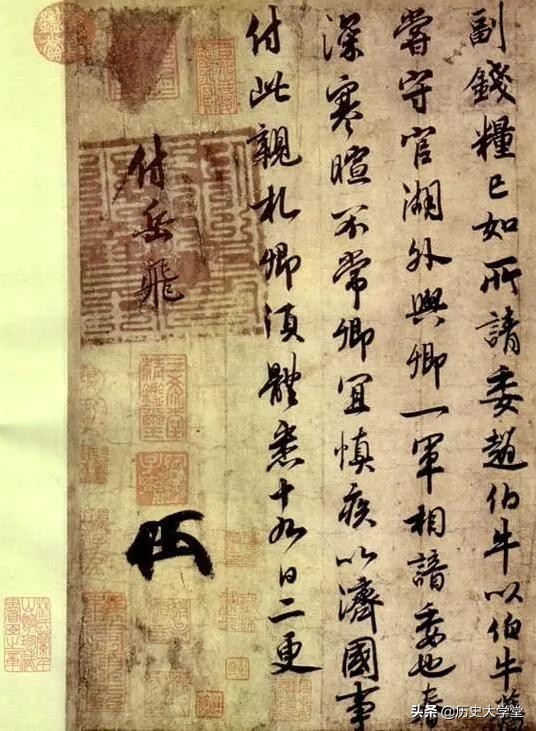 副錢糧已如所請委趙伯牛以伯牛舊
嘗守官湖外與卿一軍相諳委也春
深寒暄不常卿宜慎疾以濟國事
付此親札卿須體悉十九日二更
付岳飛
三希堂精鑑璽
宜子孫
头条 @历史大学堂